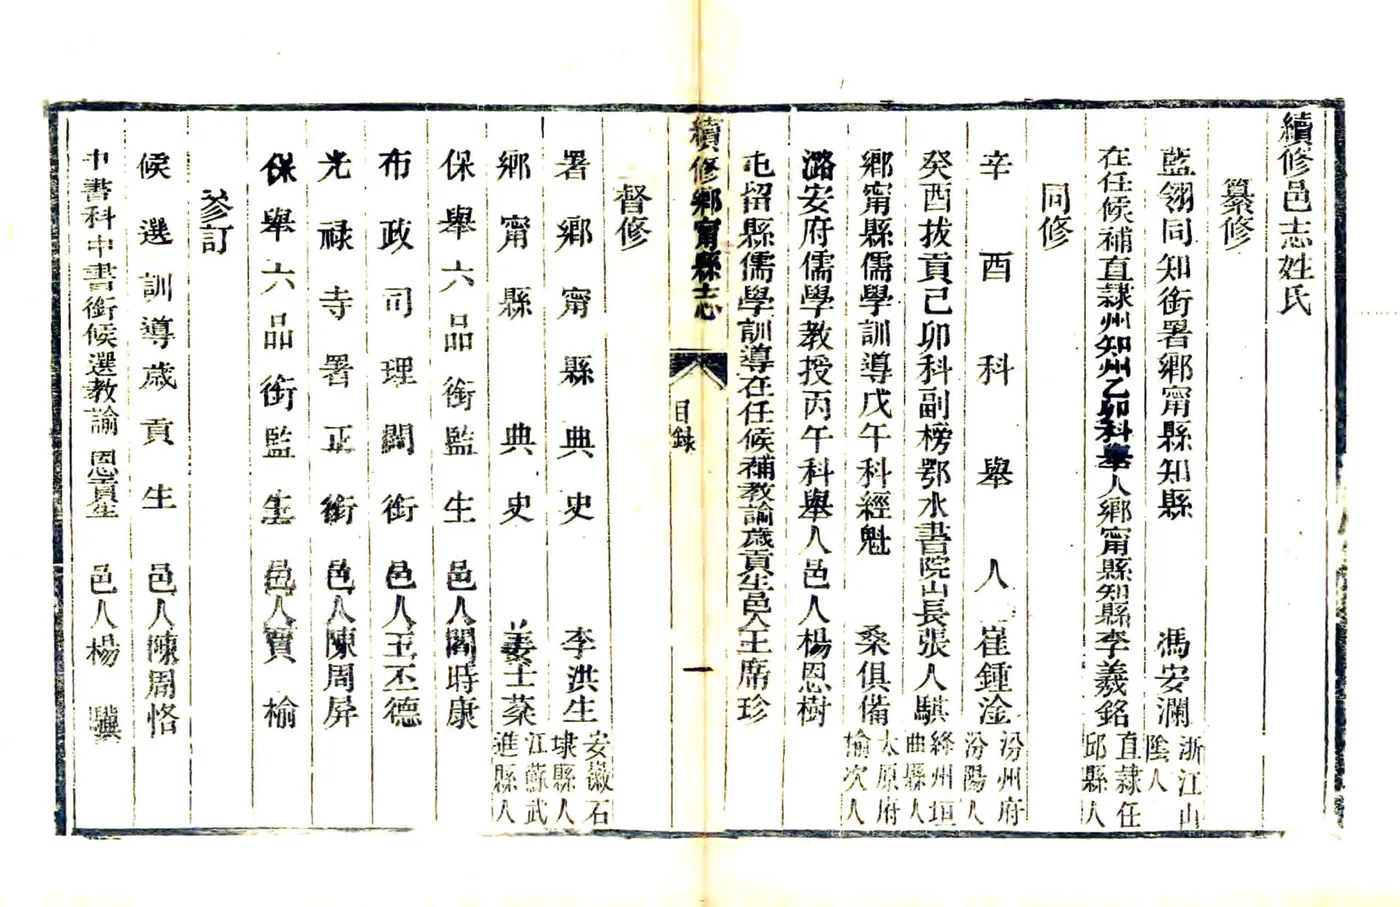 續修邑志姓氏
纂修
藍翎同知銜署鄉甯縣知縣 馮安瀾 浙江山陰人
在任候補直隸州知州乙卯科舉人鄉甯縣知縣李羲銘 直隸任邱縣人
同修
辛酉科舉人 崔鍾淦 汾州府汾陽人
癸酉拔貢己卯科副榜鄂水書院山長張人騏 絳州垣曲縣人
鄉甯縣儒學訓導戊午科經魁 桑俱備 太原府榆次人
潞安府儒學教授丙午科舉人邑人楊恩樹
屯留縣儒學訓導在任候補教諭歲貢生邑人王席珍
續修鄉甯縣志 目錄 一
督修
署鄉甯縣典史 李洪生 安徽石埭縣人
鄉甯縣典史 姜士棻 江蘇武進縣人
保舉六品銜監生 邑人閻時康
布政司理問銜 邑人王丕德
光祿寺署正銜 邑人陳周屏
保舉六品銜監生 邑人賈榆
參訂
候選訓導歲貢生 邑人陳周恪
中書科中書銜候選教諭恩貢生 邑人楊驥